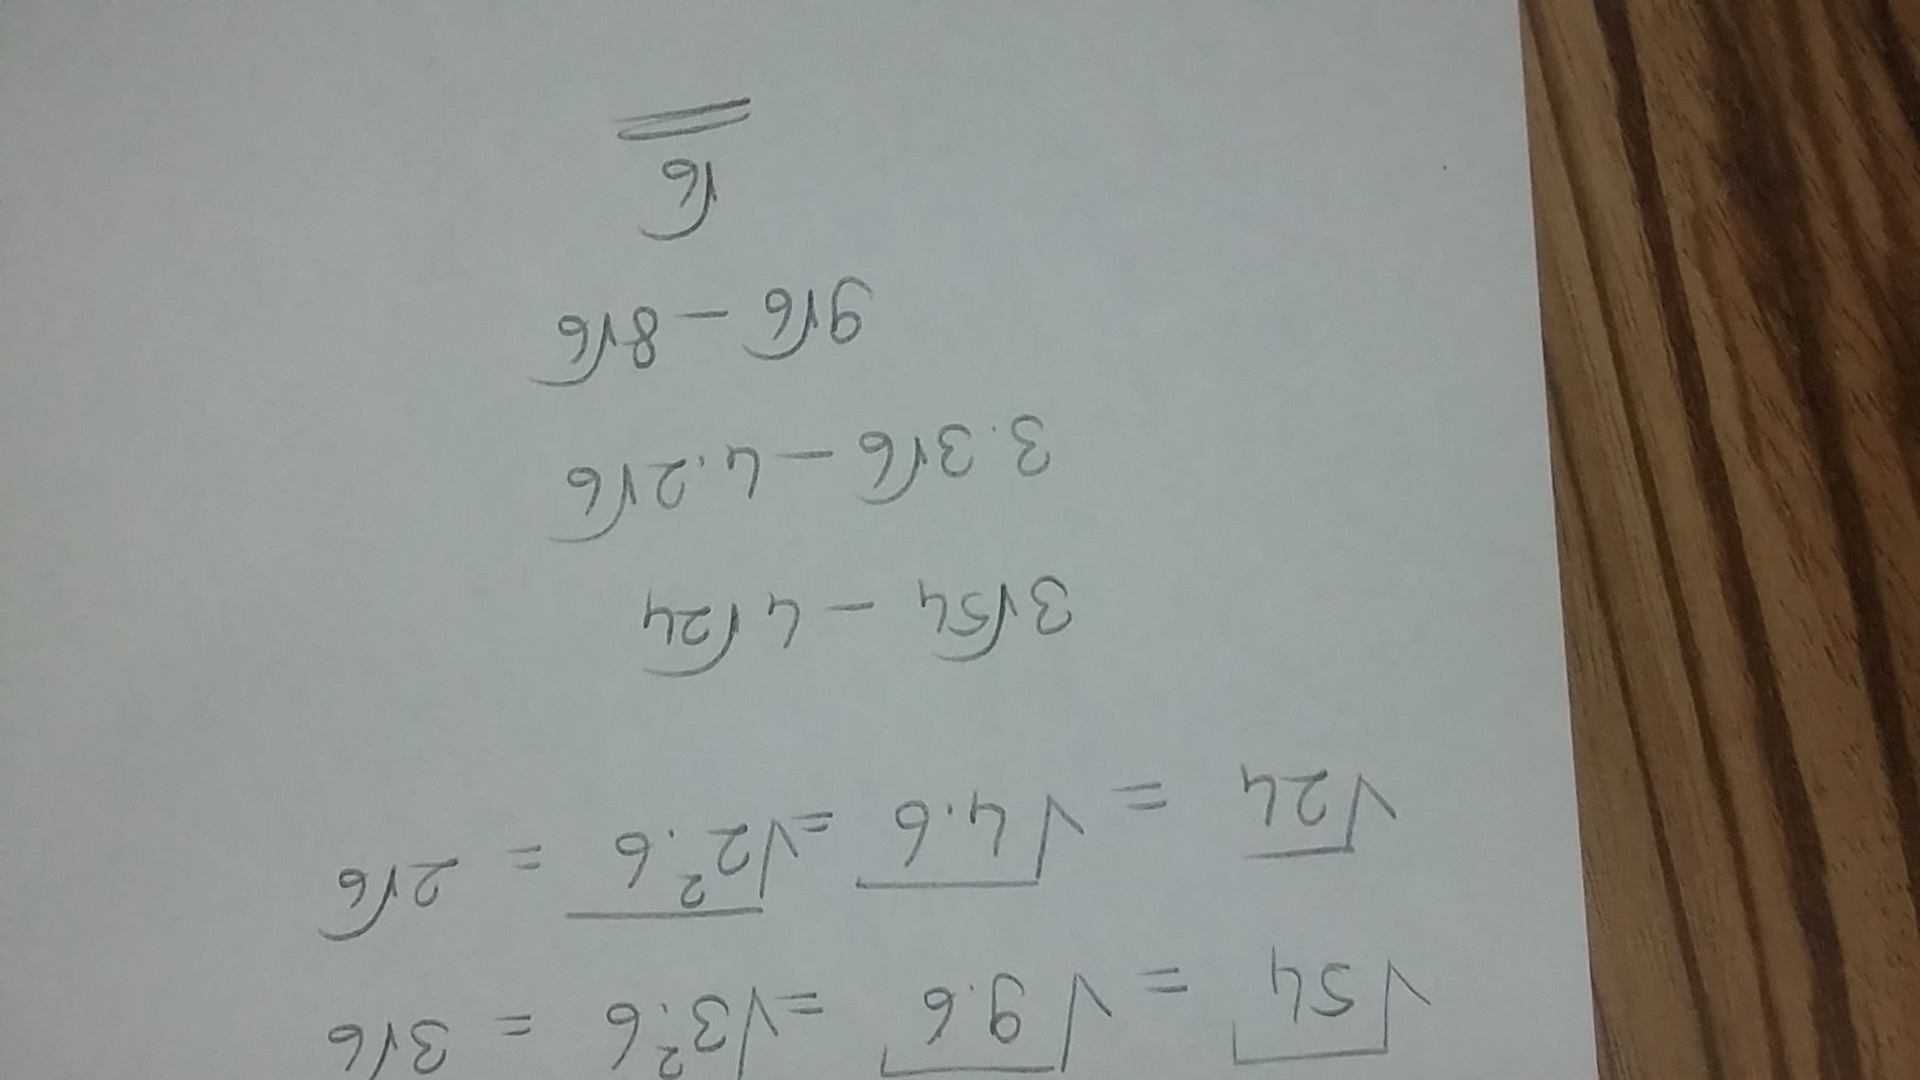 √54 = √9.6 = √3².6 = 3√6
√24 = √4.6 = √2².6 = 2√6
3√54 - 4√24
3.3√6 - 4.2√6
9√6 - 8√6
√6